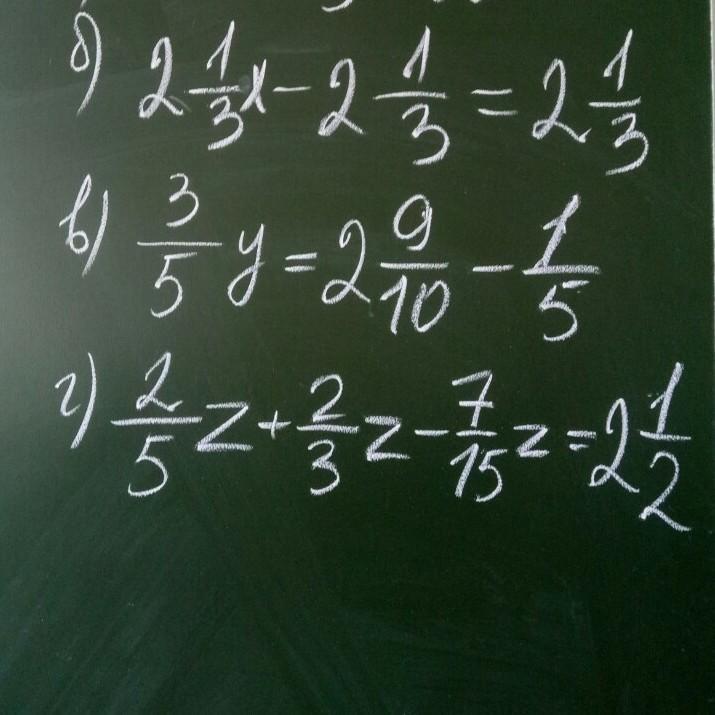 б) 2 1/3 x - 2 1/3 = 2 1/3
в) 3/5 y = 2 9/10 - 1/5
г) 2/5 z + 2/3 z - 7/15 z = 2 1/2